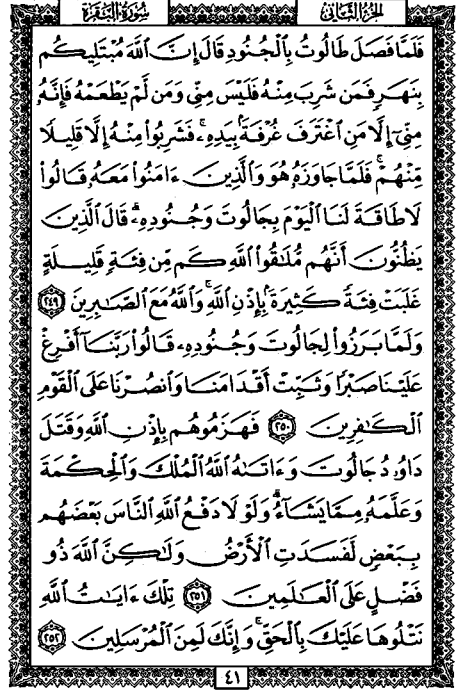 سُورَةُ الْبَقَرَةِ
الجُزءُ الثَّانِي
فَلَمَّا فَصَلَ طَالُوتُ بِٱلْجُنُودِ قَالَ إِنَّ ٱللَّهَ مُبْتَلِيكُم
بِنَهَرٍ فَمَن شَرِبَ مِنْهُ فَلَيْسَ مِنِّى وَمَن لَّمْ يَطْعَمْهُ فَإِنَّهُۥ
مِنِّىٓ إِلَّا مَنِ ٱغْتَرَفَ غُرْفَةًۢ بِيَدِهِۦۚ فَشَرِبُوا۟ مِنْهُ إِلَّا قَلِيلًا
مِّنْهُمْۚ فَلَمَّا جَاوَزَهُۥ هُوَ وَٱلَّذِينَ ءَامَنُوا۟ مَعَهُۥ قَالُوا۟
لَا طَاقَةَ لَنَا ٱلْيَوْمَ بِجَالُوتَ وَجُنُودِهِۦۚ قَالَ ٱلَّذِينَ
يَظُنُّونَ أَنَّهُم مُّلَٰقُوا۟ ٱللَّهِ كَم مِّن فِئَةٍ قَلِيلَةٍ
غَلَبَتْ فِئَةً كَثِيرَةًۢ بِإِذْنِ ٱللَّهِۗ وَٱللَّهُ مَعَ ٱلصَّٰبِرِينَ ٢٤٩
وَلَمَّا بَرَزُوا۟ لِجَالُوتَ وَجُنُودِهِۦ قَالُوا۟ رَبَّنَآ أَفْرِغْ
عَلَيْنَا صَبْرًا وَثَبِّتْ أَقْدَامَنَا وَٱنصُرْنَا عَلَى ٱلْقَوْمِ
ٱلْكَٰفِرِينَ ٢٥٠ فَهَزَمُوهُم بِإِذْنِ ٱللَّهِ وَقَتَلَ
دَاوُۥدُ جَالُوتَ وَءَاتَىٰهُ ٱللَّهُ ٱلْمُلْكَ وَٱلْحِكْمَةَ
وَعَلَّمَهُۥ مِمَّا يَشَآءُۗ وَلَوْلَا دَفْعُ ٱللَّهِ ٱلنَّاسَ بَعْضَهُم
بِبَعْضٍ لَّفَسَدَتِ ٱلْأَرْضُ وَلَٰكِنَّ ٱللَّهَ ذُو
فَضْلٍ عَلَى ٱلْعَٰلَمِينَ ٢٥١ تِلْكَ ءَايَٰتُ ٱللَّهِ
نَتْلُوهَا عَلَيْكَ بِٱلْحَقِّۚ وَإِنَّكَ لَمِنَ ٱلْمُرْسَلِينَ ٢٥٢
٤١